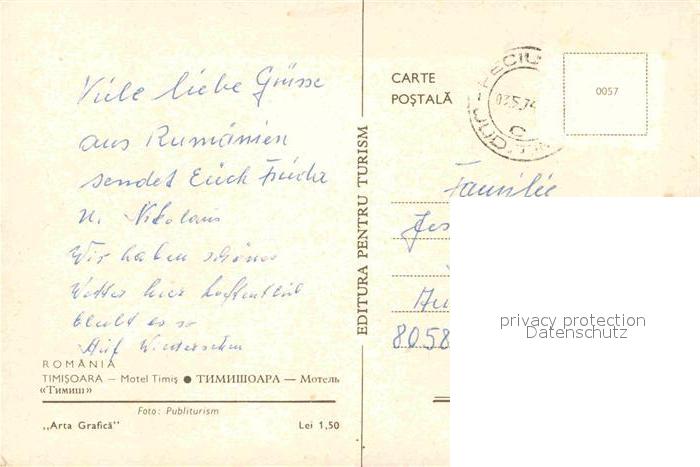 Viele liebe Grüsse
aus Rumänien
sendet Euch Frieda
u. Nikolaus
Wir haben schönes
Wetter hier hoffentlich
bleibt es so
Auf Wiedersehn
ROMÂNIA
TIMIȘOARA – Motel Timiș ● ТИМИШОАРА — Мотель
«Тимиш»
Foto: Publiturism
„Arta Grafică” Lei 1,50
EDITURA PENTRU TURISM
CARTE
POȘTALĂ
0057
Familie
8058
privacy protection
Datenschutz